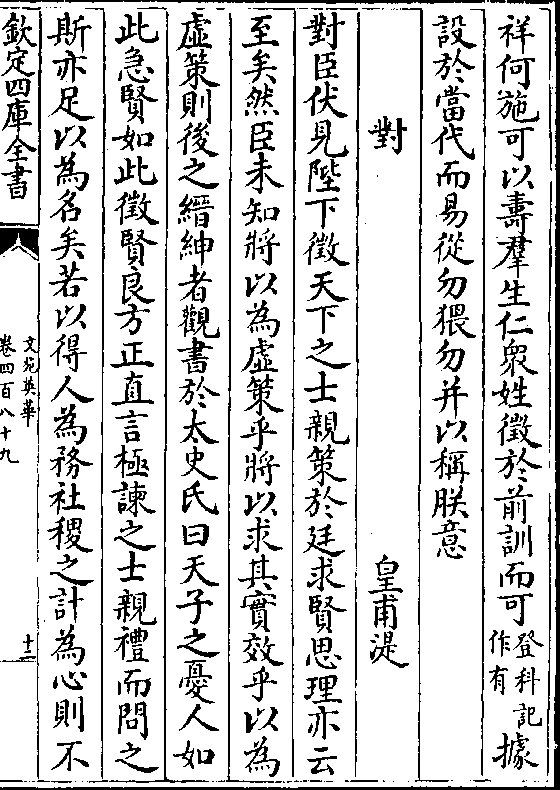 祥何施可以壽羣生仁衆姓徵於前訓而可登科記作有據
設於當代而易從勿猥勿并以稱朕意
對　皇甫湜
對臣伏見陛下徵天下之士親策於廷求賢思理亦云
至矣然臣未知將以為虛策乎將以求其實效乎以為
虛策則後之縉紳者觀書於太史氏曰天子之憂人如
此急賢如此徵賢良方正直言極諫之士親禮而問之
斯亦足以為名矣若以得人為務社稷之計為心則不
欽定四庫全書
文苑英華
卷四百八十九
十二